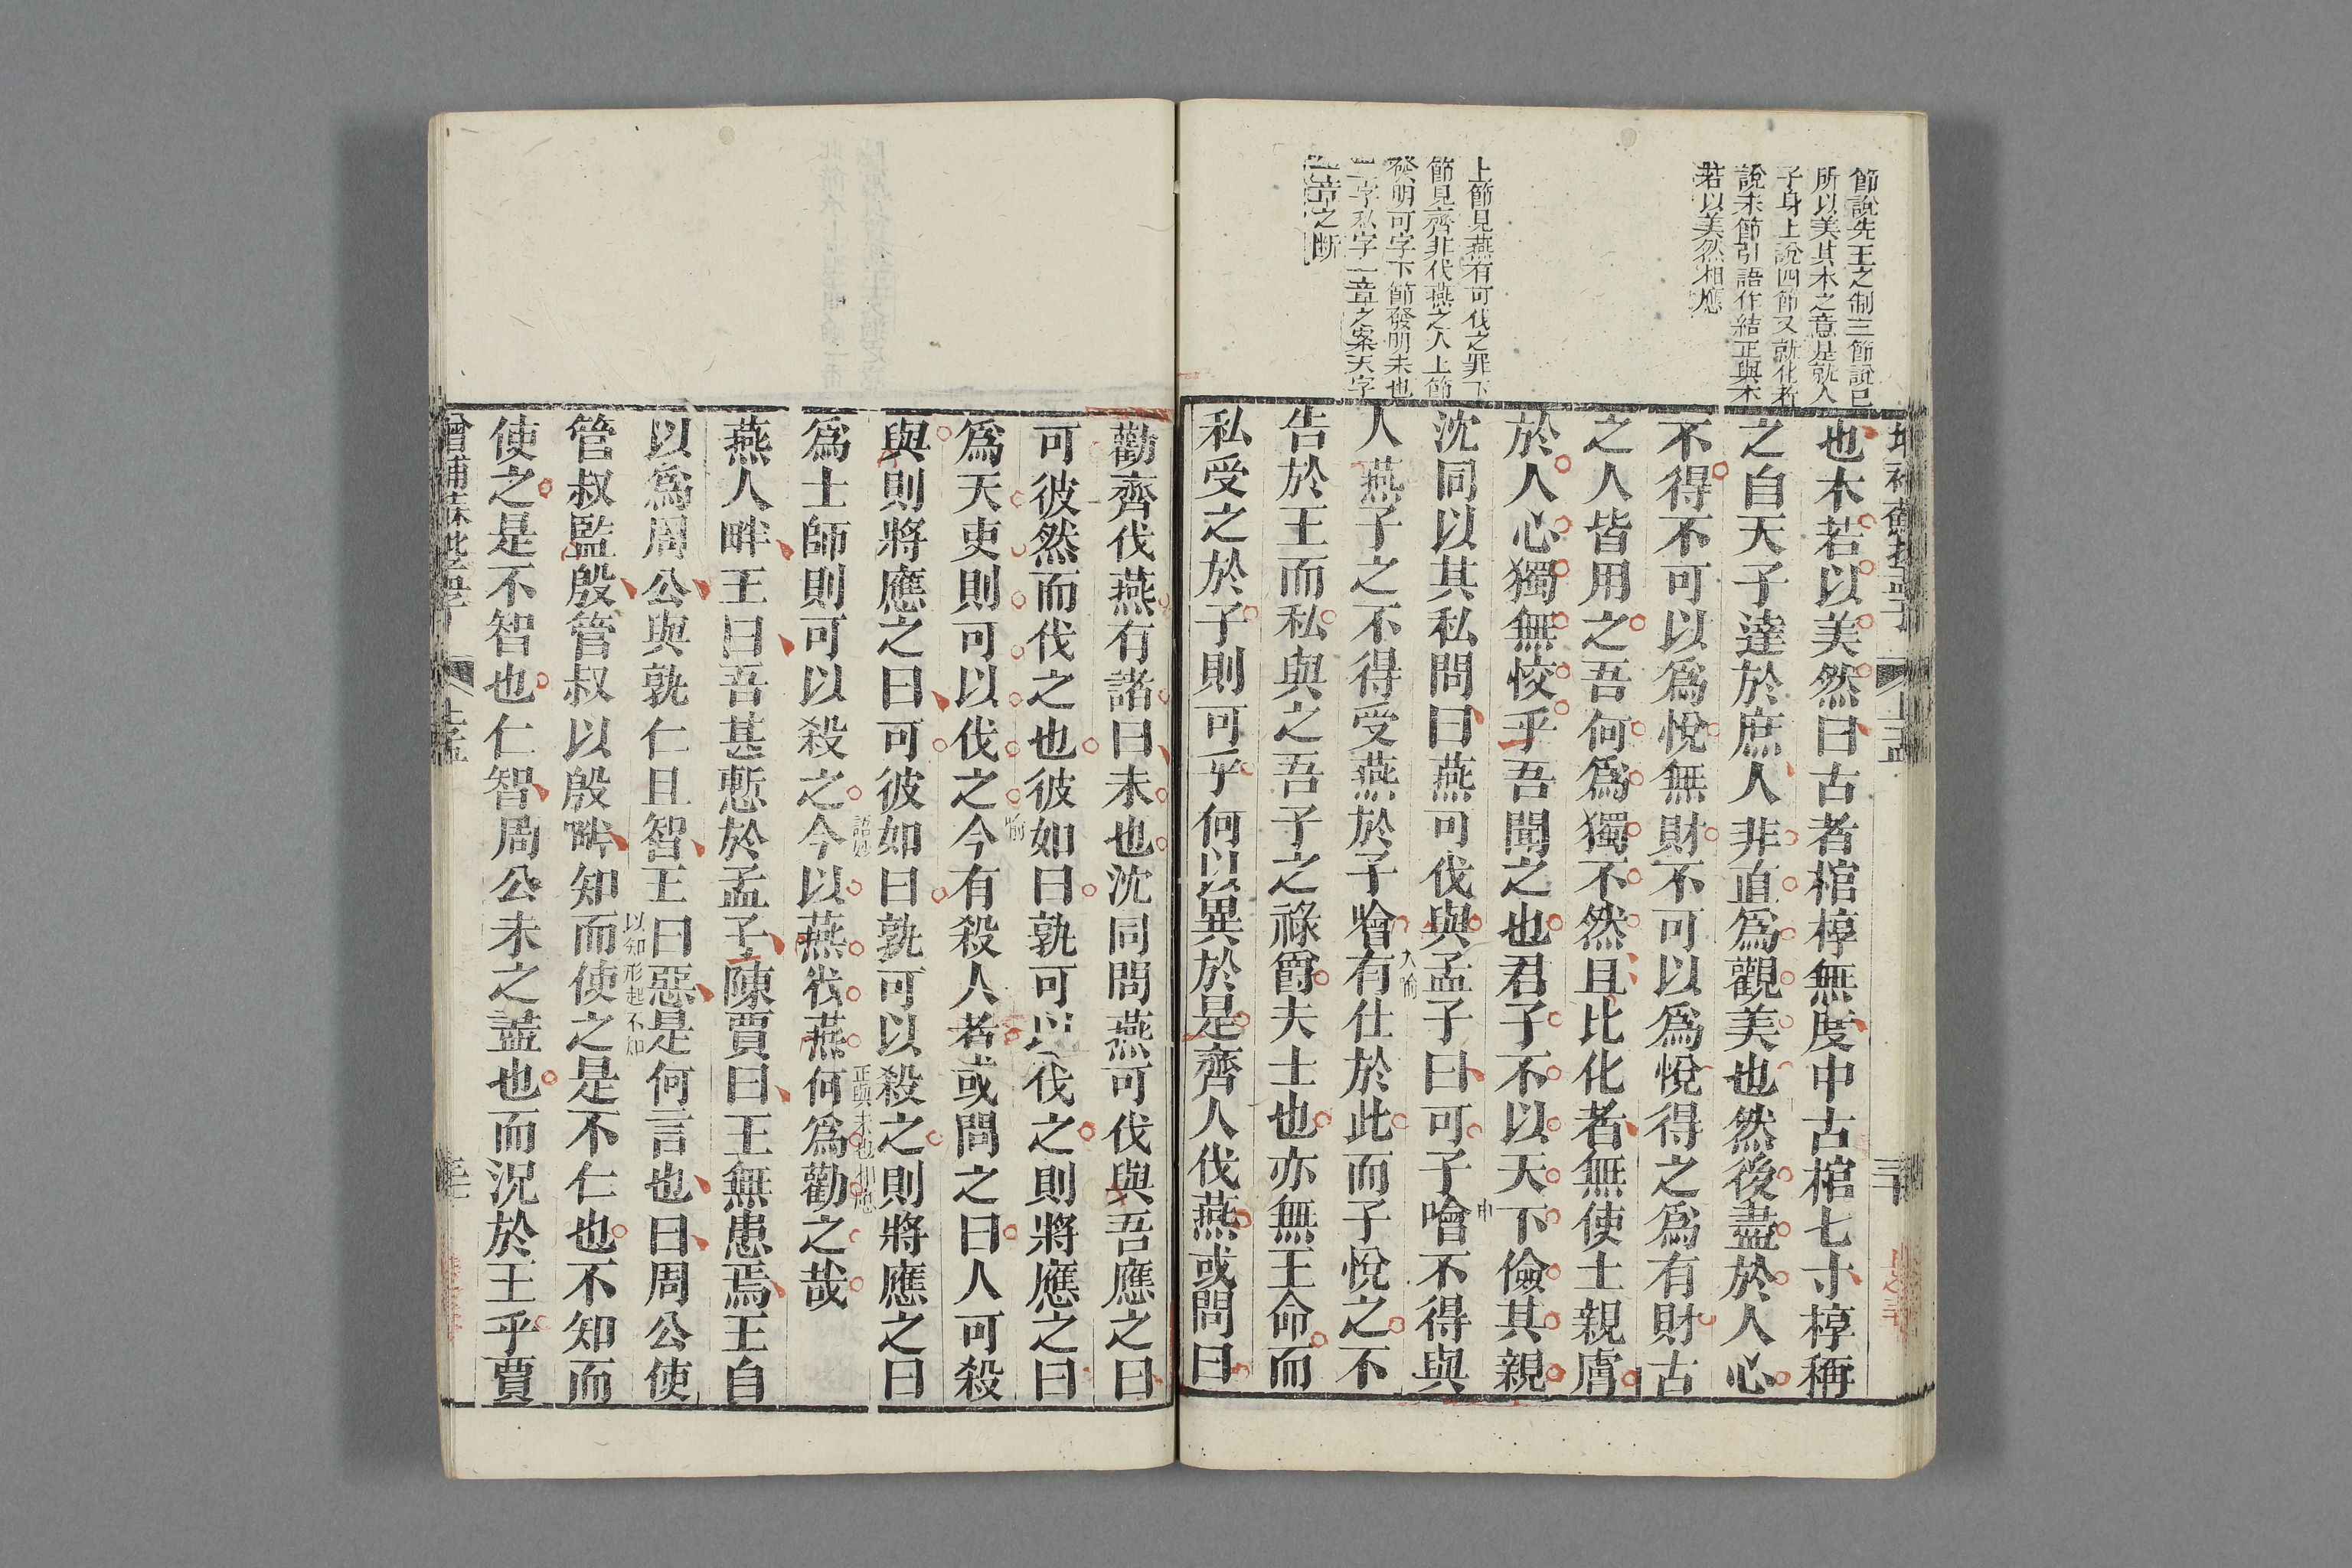 節說先王之制三節說已
所以美其木之意是就人
子身上說四節又就化者
說末節引語作結正與木
若以美然相應
上節見燕有可伐之罪下
節見齊非伐燕之人上節
發明可字下節發明未也
二字私字一章之案天字
一章之斷
也木若以美然曰古者棺椁無度中古棺七寸椁稱
之自天子達於庶人非直爲觀美也然後盡於人心
不得不可以爲悅無財不可以爲悅得之爲有財古
之人皆用之吾何爲獨不然且比化者無使土親膚
於人心獨無恔乎吾聞之也君子不以天下儉其親
沈同以其私問曰燕可伐與孟子曰可子噲不得與
申
人燕子之不得受燕於子噲有仕於此而子悅之不
大喻
告於王而私與之吾子之祿爵夫士也亦無王命而
私受之於子則可乎何以異於是齊人伐燕或問曰
勸齊伐燕有諸曰未也沈同問燕可伐與吾應之曰
可彼然而伐之也彼如曰孰可以伐之則將應之曰
爲天吏則可以伐之今有殺人者或問之曰人可殺
喻
與則將應之曰可彼如曰孰可以殺之則將應之曰
爲士師則可以殺之今以燕伐燕何爲勸之哉
語妙
正與未也相應
燕人畔王曰吾甚慙於孟子陳賈曰王無患焉王自
以爲周公與孰仁且智王曰惡是何言也曰周公使
管叔監殷管叔以殷畔知而使之是不仁也不知而
以知形起不知
使之是不智也仁智周公未之盡也而況於王乎賈